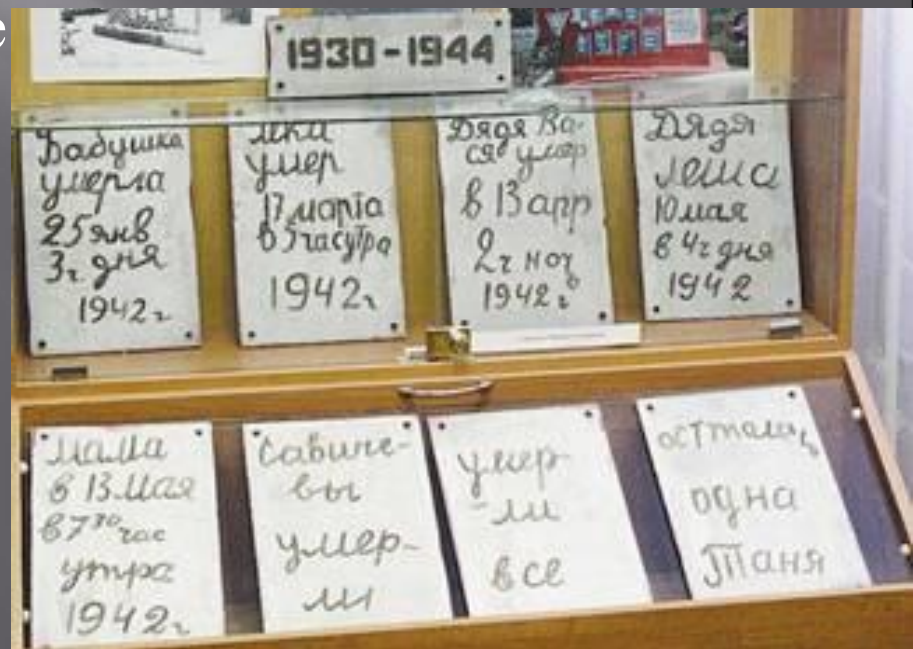 1930-1944
Бабушка
умерла
25 янв
3ч. дня
1942г
Лека
умер
17 марта
в 5 часутра
1942г
Дядя Ва-
ся умер
в 13 апр
2ч ноч
1942г
Дядя
Леша
10 мая
в 4ч дня
1942
Мама
в 13 мая
в 7 30 час
утра
1942г
Савиче-
вы
умер-
ли
умер
-ли
все
осталась
одна
Таня